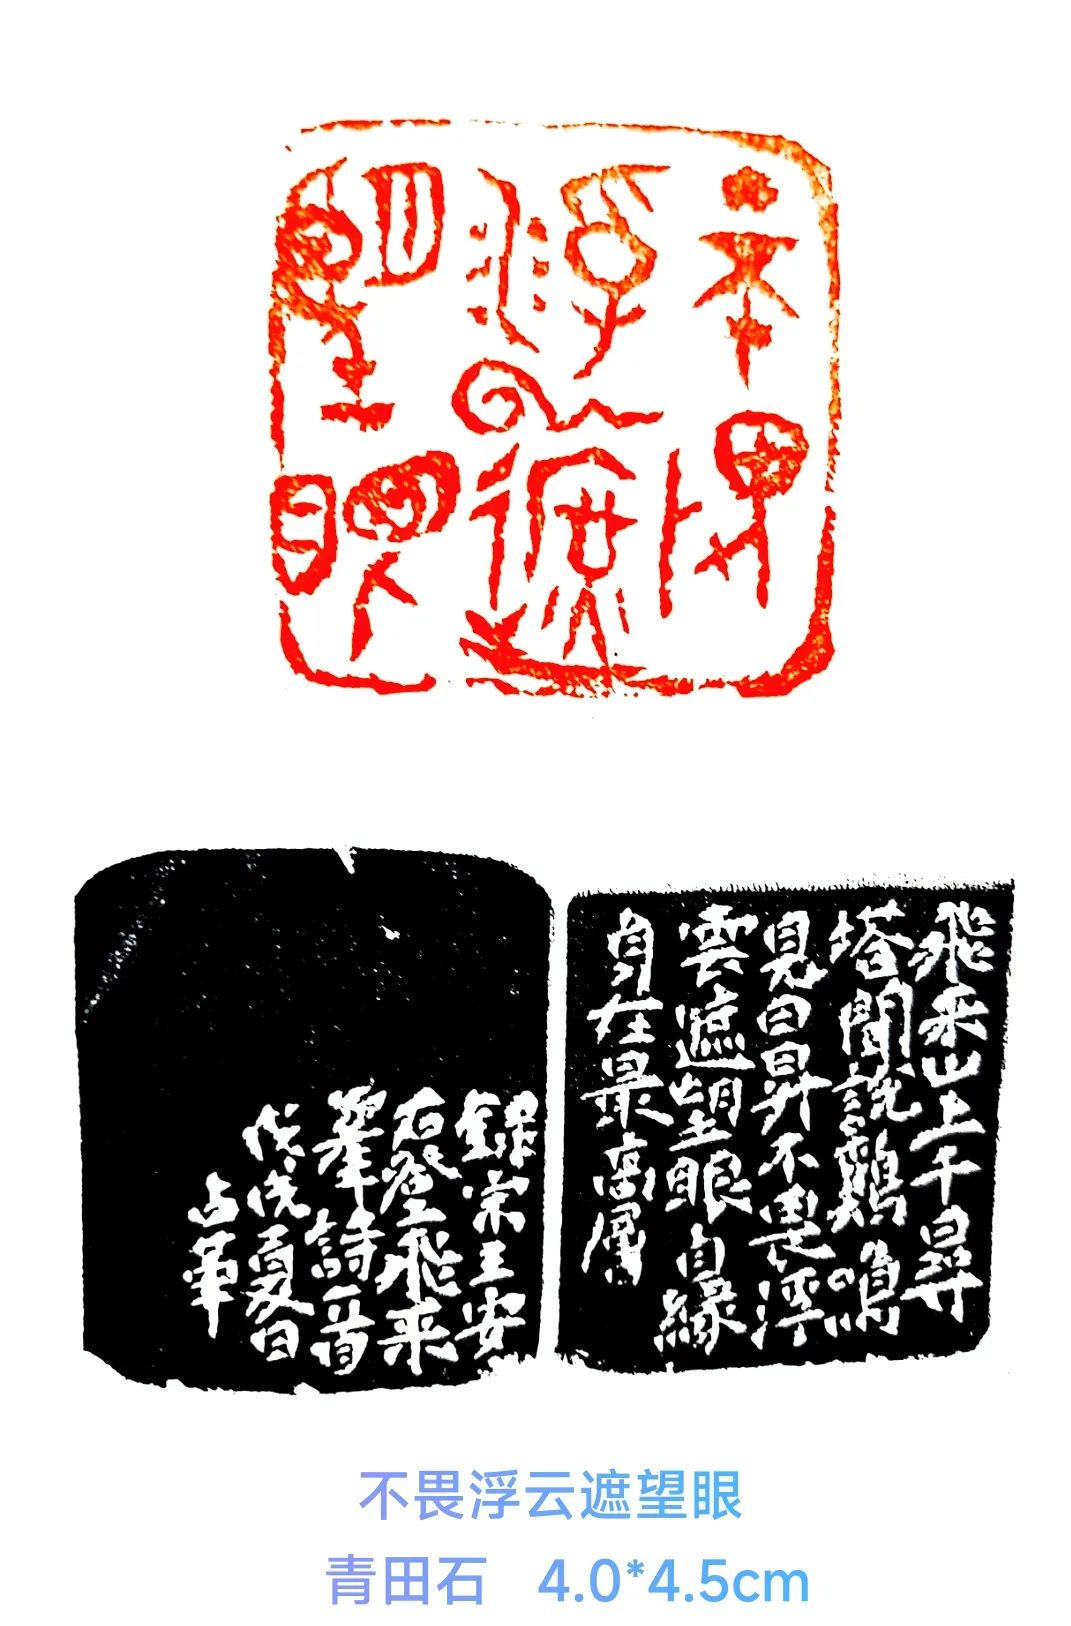 不畏
浮云遮
望眼
飛来山上千尋
塔聞説鷄鳴
見日昇不畏浮
雲遮望眼自緣
身在最高層
錄宋王安
石登飛来
峯詩一首
戊戌夏日
占軍
不畏浮云遮望眼
青田石 4.0*4.5cm